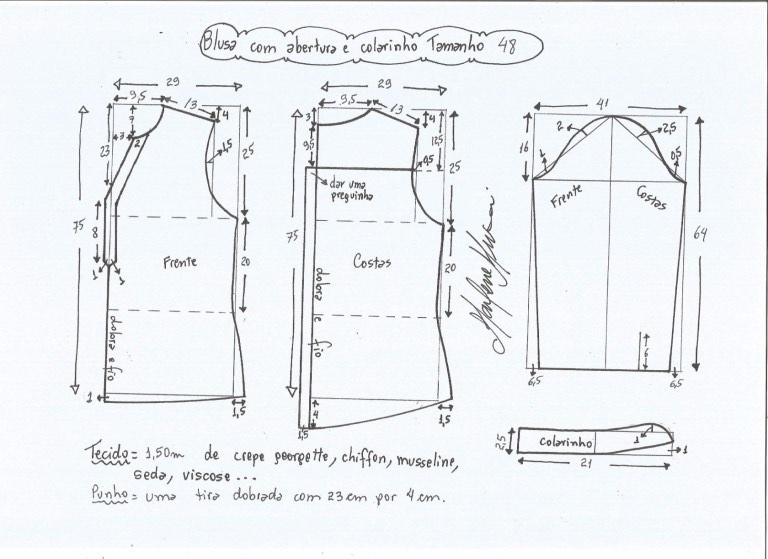 Blusa com abertura e colarinho Tamanho 48
29
9,5
13
4
7
3
2
23
4,5
25
75
8
1
1
Frente
20
dobra e fio
1
1,5
29
9,5
13
3
4
12,5
9,5
0,5
25
dar uma
preguinha
75
Costas
20
dobra e fio
4
1,5
1,5
41
16
2
2,5
1
0,5
Frente
Costas
64
6
6,5
6,5
Marlene Mukai
2,5
colarinho
1
1
21
Tecido = 1,50m de crepe georgette, chiffon, musseline,
seda, viscose ...
Punho = uma tira dobrada com 23 cm por 4 cm.